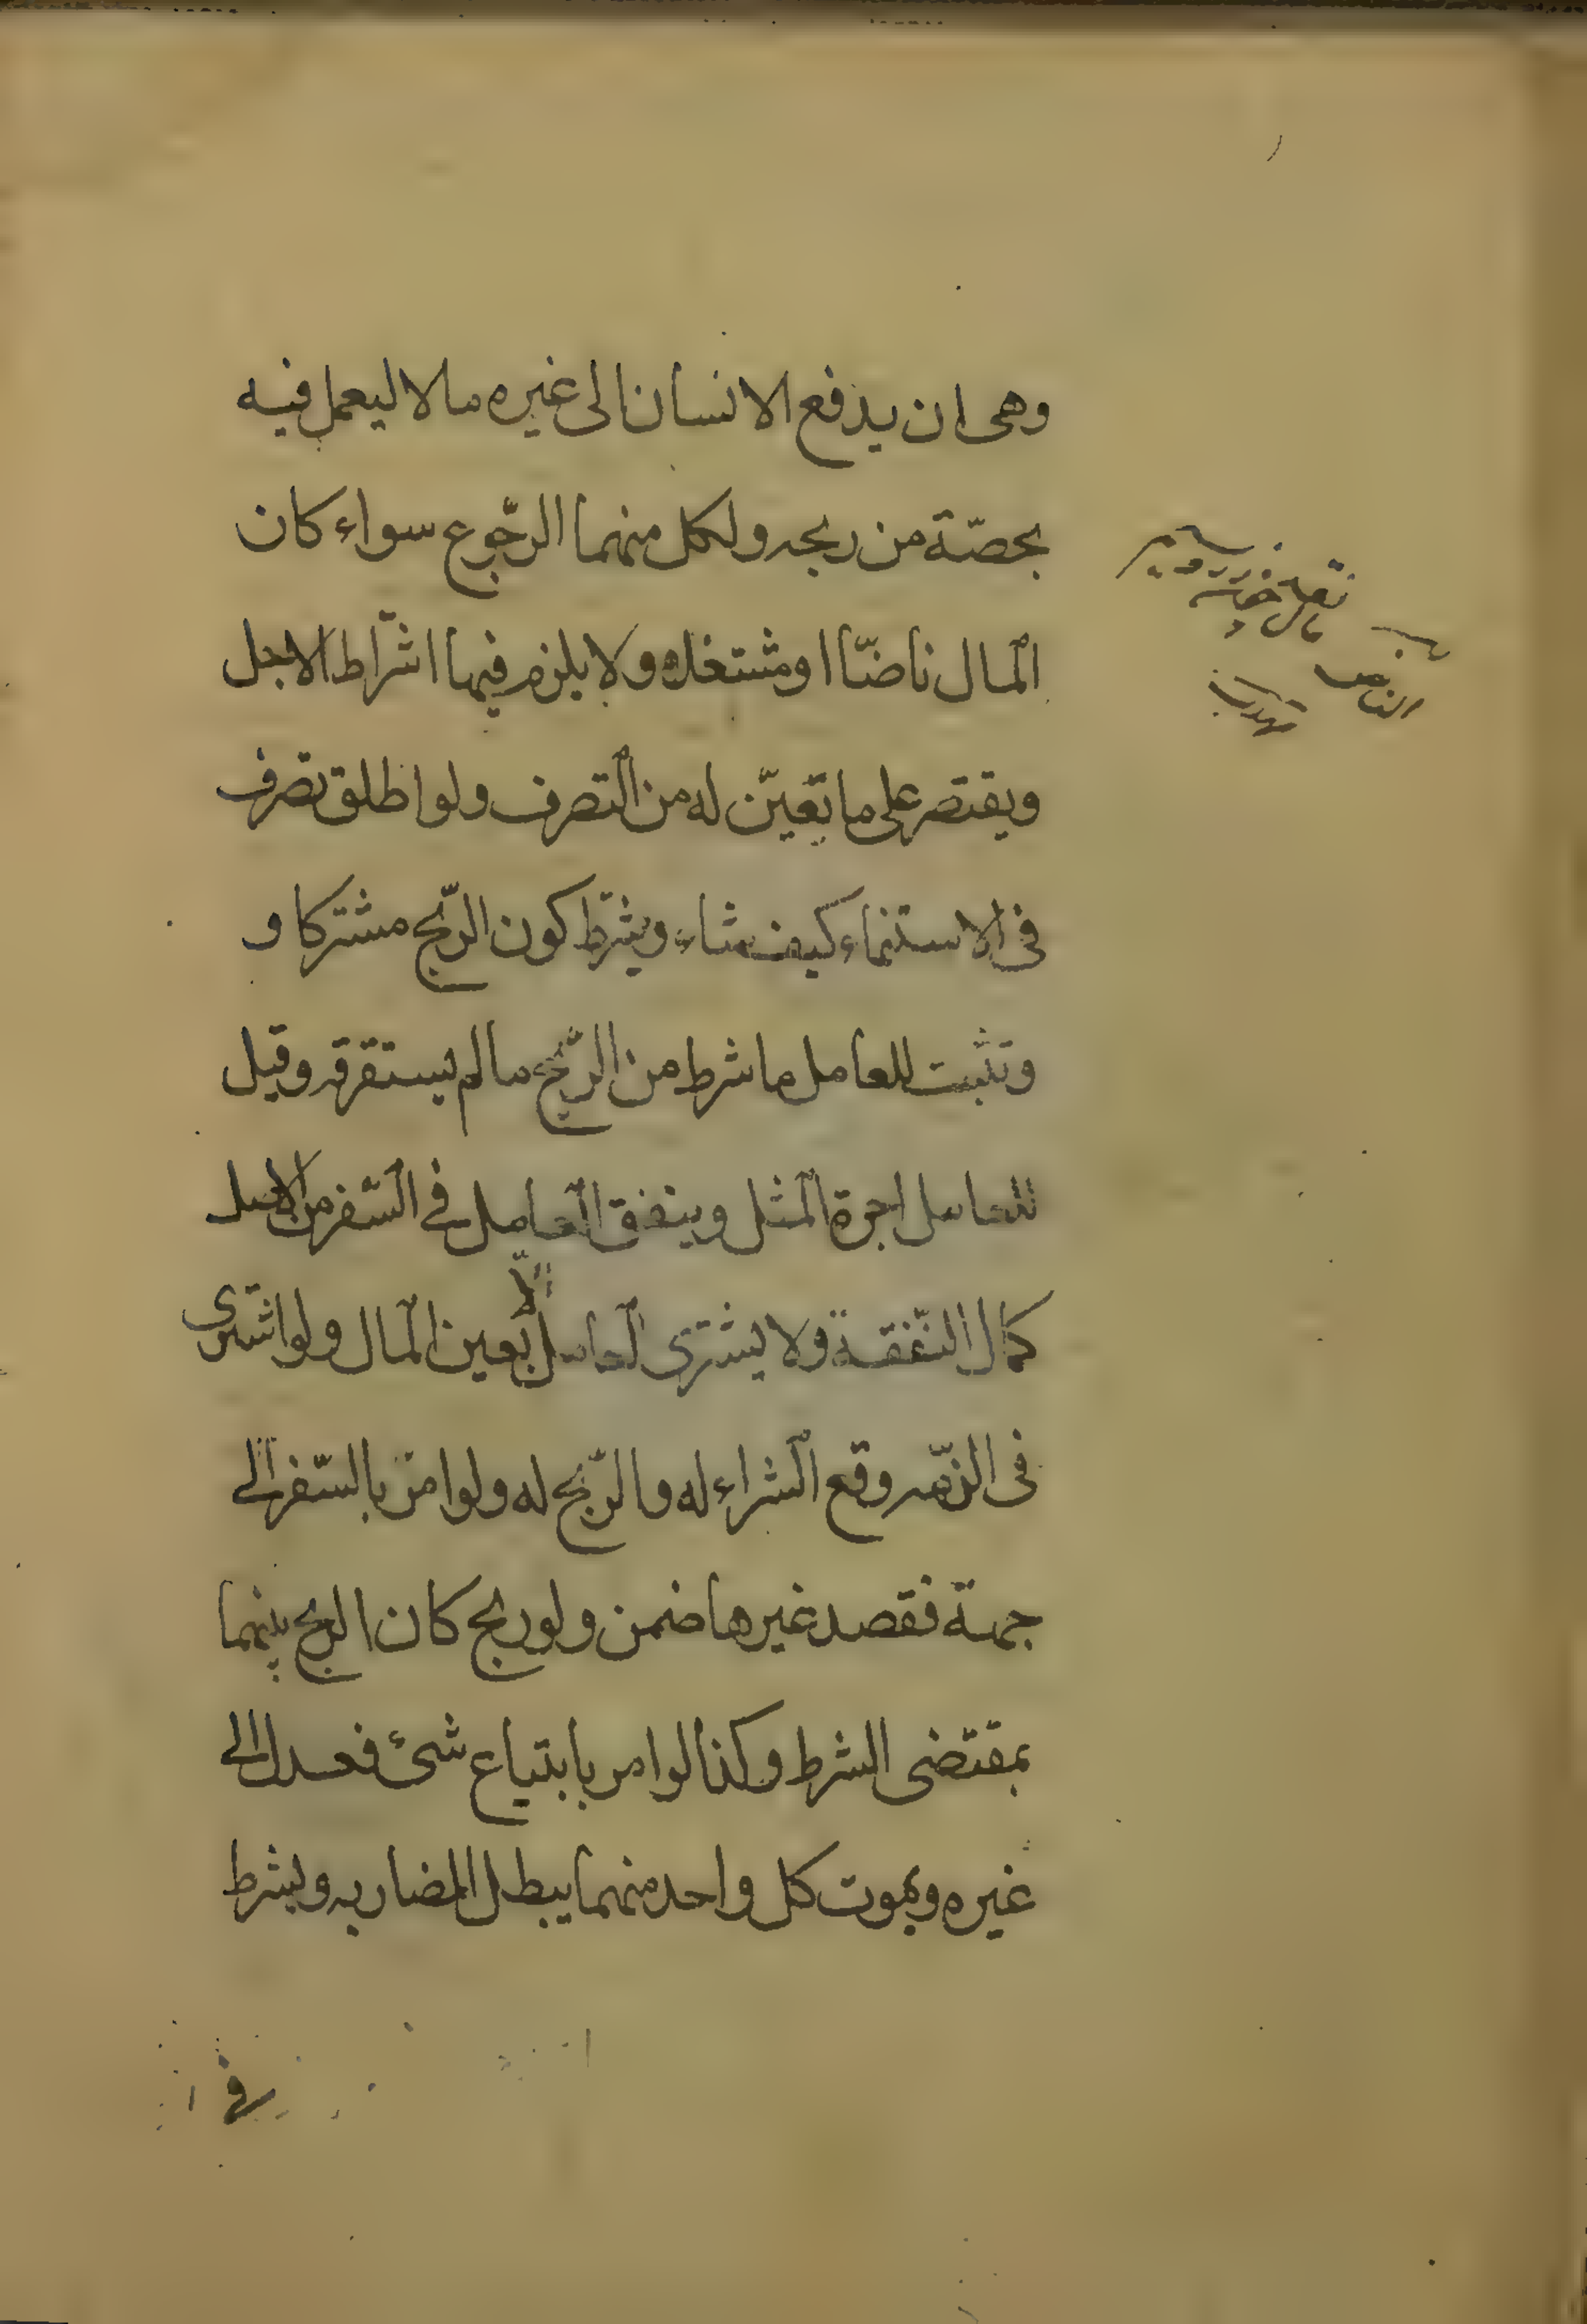 وهى ان يدفع الانسان الى غيره مالا ليعمل فيه
بحصّة من ربحه ولكل منهما الرّجوع سواء كان
المال ناضّا او مشتغلا ولا يلزم فيها اشتراط الاجل
ويقتصر على ما تعيّن له من التصرف ولو اطلق تصرف
فى الاستنماء كيف شاء ويشترط كون الرّبح مشتركا و
وتثبت للعامل ما شرط من الرّبح ما لم يستقرقه وقيل
للعامل اجرة المثل وينفق العامل فى السّفر من الاصل
كمال النّفقة ولا يشترى العامل الّا بعين المال ولو اشترى
فى الذمّه وقع الشراء له والرّبح له ولو امر بالسّفر الى
جهة فقصد غيرها ضمن ولو ربح كان الربح بينهما
بمقتضى الشرط وكذا لو امر بابتياع شئ فعدل الى
غيره وبموت كل واحد منهما يبطل المضاربه ويشترط
فى